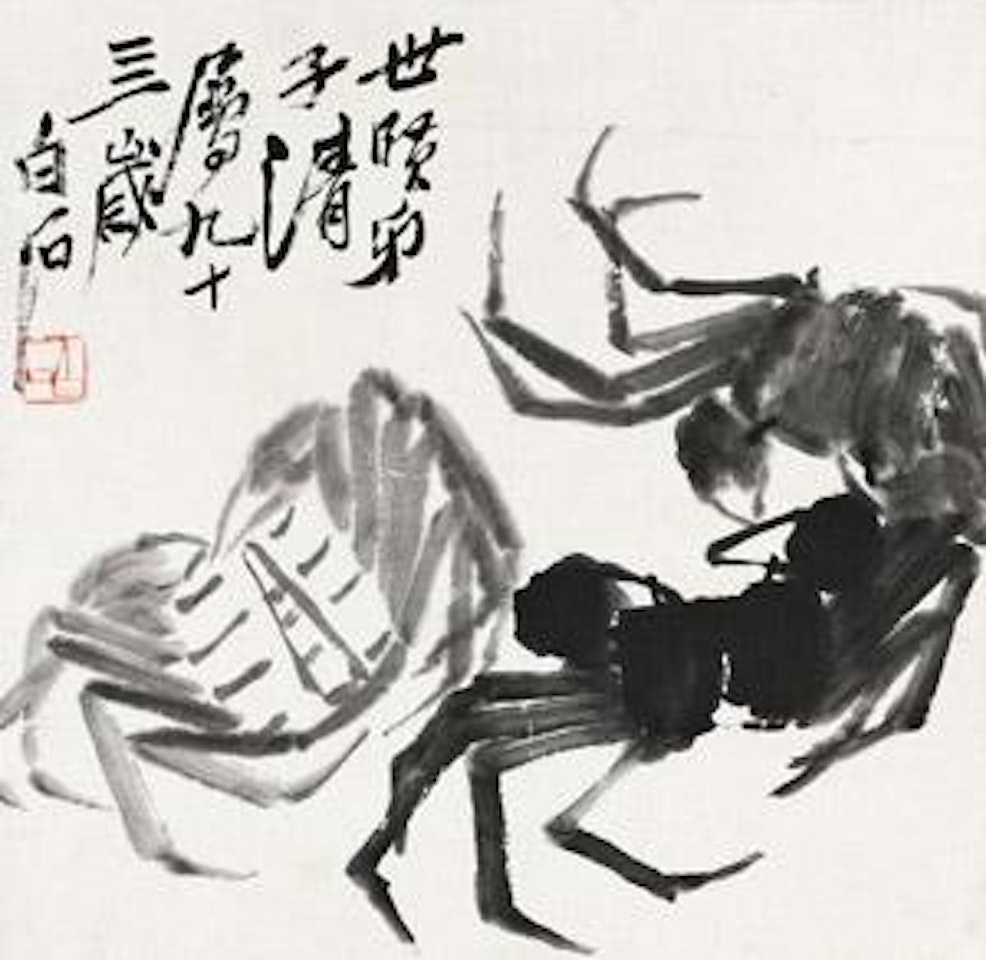 世賢
子清
屬九十
三歲
白石